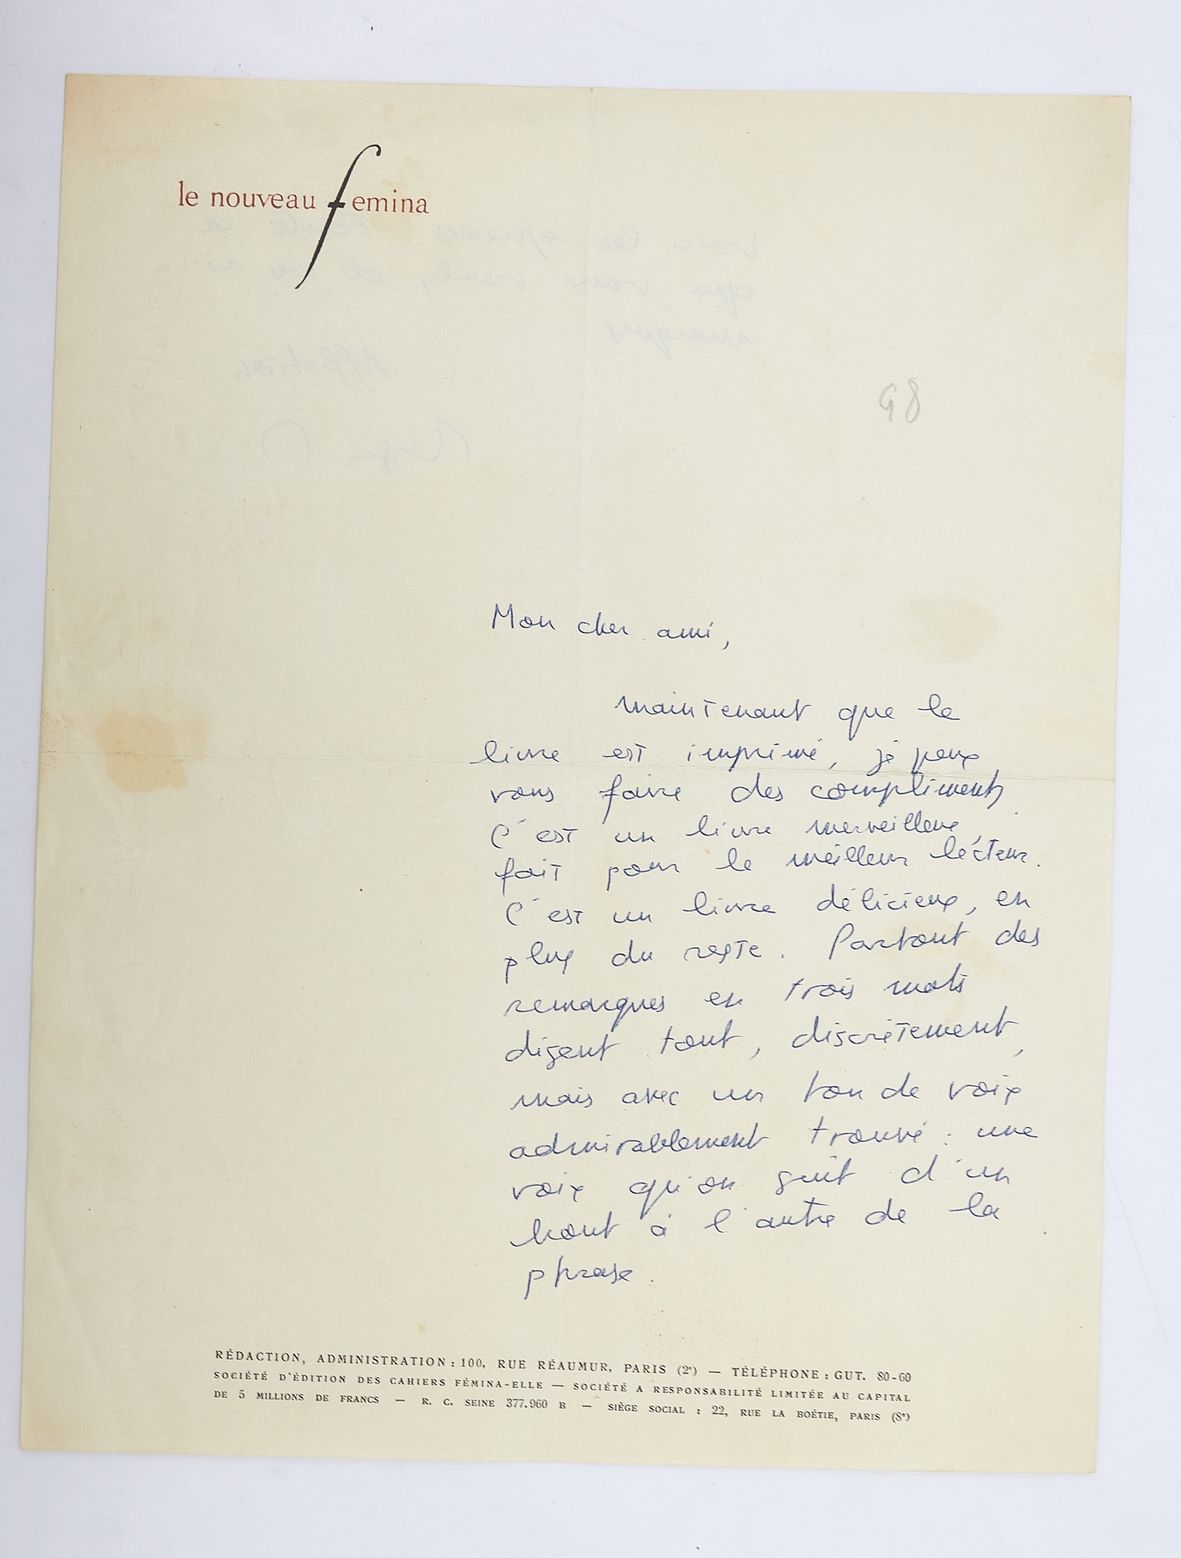 le nouveau femina
98
Mon cher ami,
maintenant que le
livre est imprimé, je peux
vous faire des compliments
C'est un livre merveilleux,
fait pour le meilleur lecteur.
C'est un livre délicieux, en
plus du reste. Partout des
remarques en trois mots
disent tout, discrètement,
mais avec un ton de voix
admirablement trouvé : une
voix qu'on suit d'un
bout à l'autre de la
phrase.
RÉDACTION, ADMINISTRATION : 100, RUE RÉAUMUR, PARIS (2e) — TÉLÉPHONE : GUT. 80-60
SOCIÉTÉ D'ÉDITION DES CAHIERS FÉMINA-ELLE — SOCIÉTÉ A RESPONSABILITÉ LIMITÉE AU CAPITAL
DE 5 MILLIONS DE FRANCS — R. C. SEINE 377.960 B — SIÈGE SOCIAL : 22, RUE LA BOÉTIE, PARIS (8e)